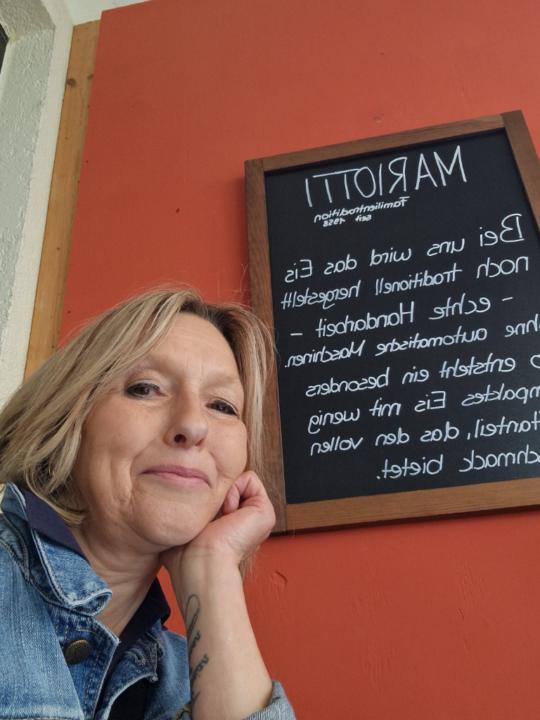 MARIOTTI
Familientradition
seit 1958
Bei uns wird das Eis
noch traditionell hergestellt
- echte Handarbeit -
ohne automatische Maschinen.
entsteht ein besonders
mpaktes Eis mit wenig
ftanteil, das den vollen
chmack bietet.